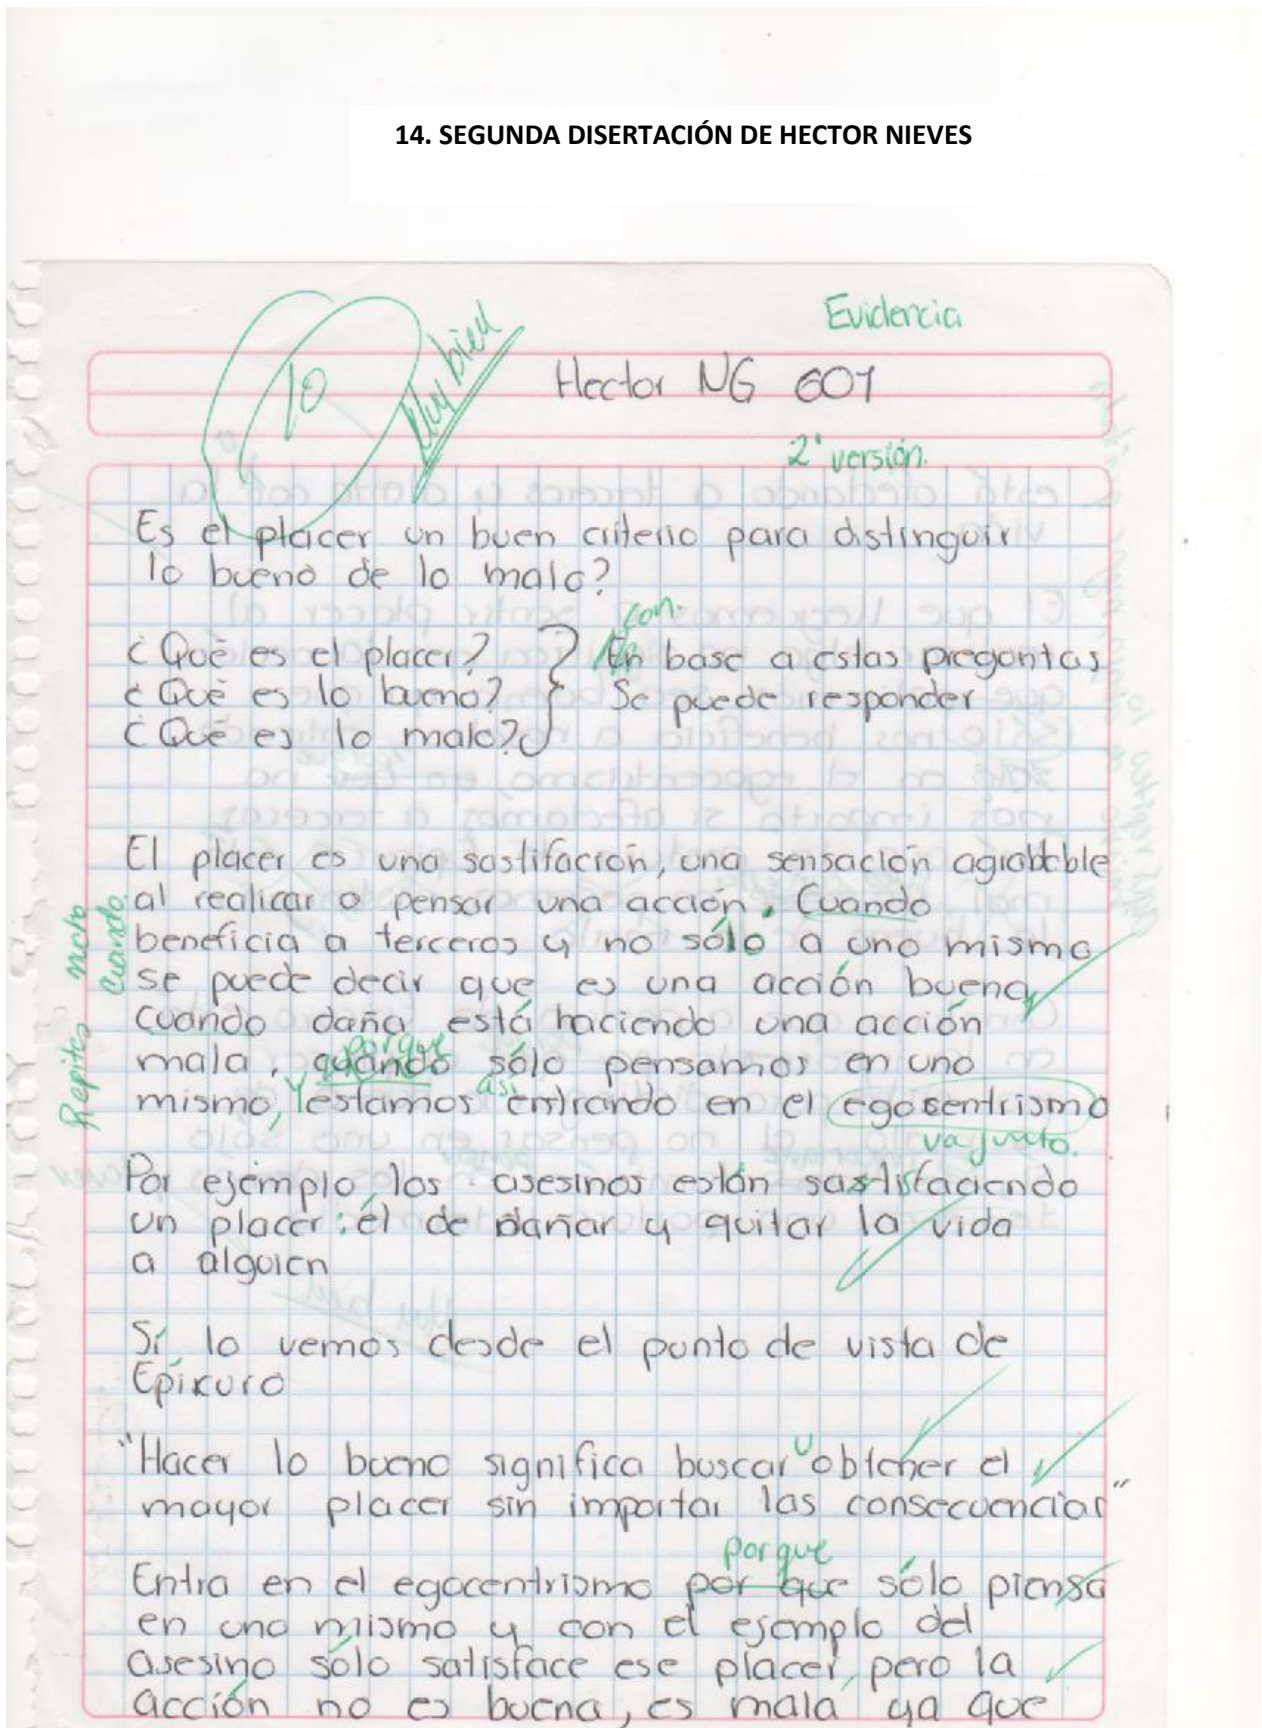 14. SEGUNDA DISERTACIÓN DE HECTOR NIEVES
Evidencia
10
Muy bien
Hector NG 601
2ª versión.
Es el placer un buen criterio para distinguir
lo bueno de lo malo?
con.
¿Qué es el placer? } En base a estas preguntas
¿Qué es lo bueno? } Se puede responder
¿Qué es lo malo? }
El placer es una sastifación, una sensación agradable
al realizar o pensar una acción. Cuando
beneficia a terceros y no sólo a uno mismo
se puede decir que es una acción buena,
cuando daña está haciendo una acción
porque
mala, quando sólo pensamos en uno
mismo, y estamos así entrando en el egosentrismo
va junto.
Repites mucho
cuando.
Por ejemplo, los asesinos están sastisfaciendo
un placer: él de dañar y quitar la vida
a alguien
Sí lo vemos desde el punto de vista de
Epikuro
"Hacer lo bueno significa buscar u obtener el
mayor placer sin importar las consecuencias"
porque
Entra en el egocentrismo por que sólo piensa
en uno mismo y con el ejemplo del
asesino sólo satisface ese placer, pero la
acción no es buena, es mala ya que